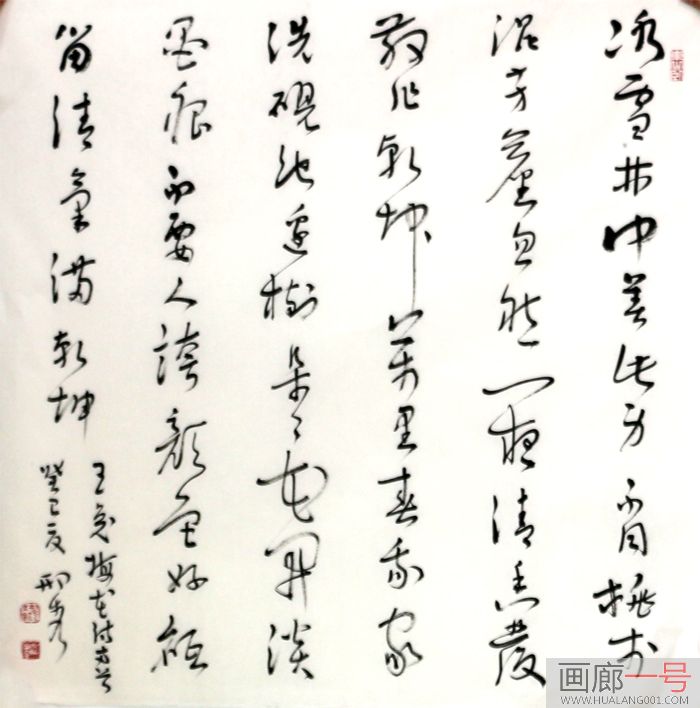 冰雪林中著此身不同桃李
混芳塵忽然一夜清香發
散作乾坤萬里春我家
洗硯池邊樹朵々花開淡
墨痕不要人誇顏色好祇
留清氣滿乾坤
王冕梅花诗
癸巳夏
画廊一号
WWW.HUALANG001.COM